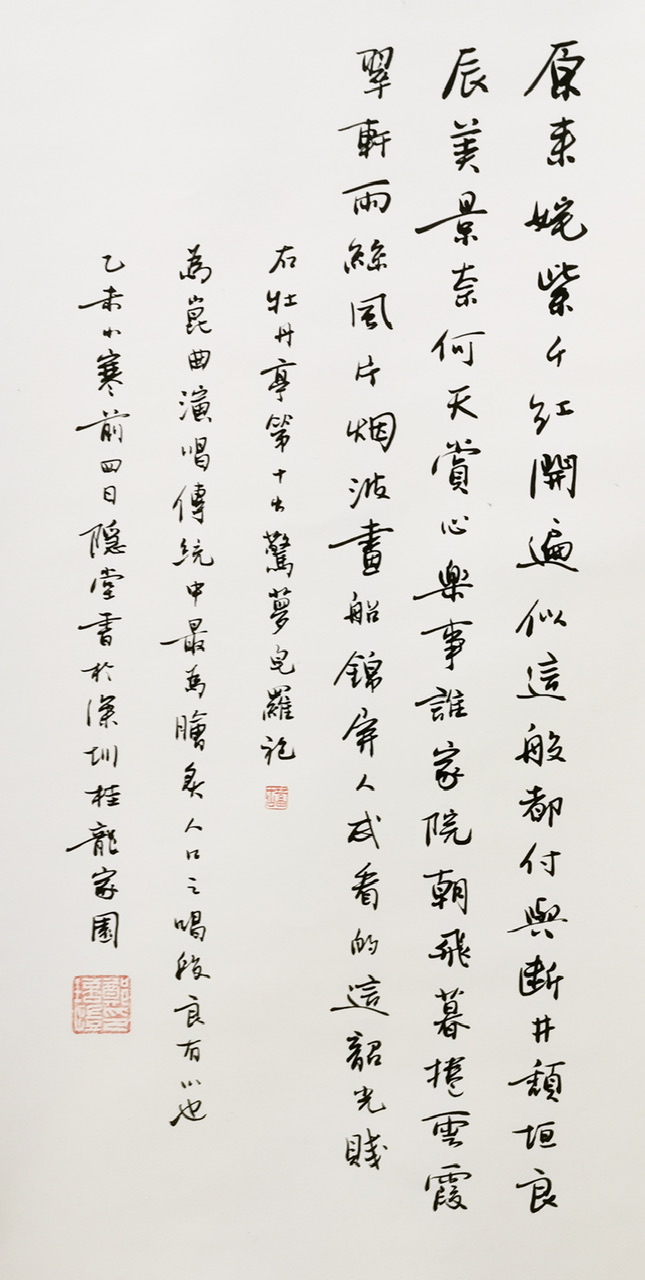 原来姹紫千红開遍似這般都付與断井頽垣良
辰美景奈何天賞心樂事誰家院朝飛暮捲雲霞
翠軒雨絲風片烟波畫船錦屏人忒看的這韶光賤
右牡丹亭第十出驚夢皂羅袍
為崑曲演唱傳統中最為膾炙人口之唱段良有以也
乙未小寒前四日隐堂書於深圳桂龍家園